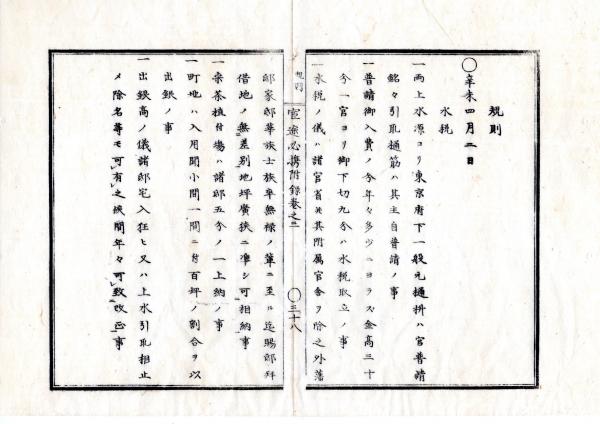 規則
〇辛未四月二日
水税
一両上水源ヨリ東京府下一般元樋枡ハ官普請
銘々引取樋筋ハ其主自普請ノ事
一普請御入費ノ今年々多少ニヨラス金高三十
分一官ヨリ御下切九分ハ水税取立ノ事
一水税ノ儀ハ諸官省并其附属官舎ヲ除之外藩
規則
宣塗必携附録巻之三
〇三十八
邸家邸華族士族卒無禄ノ輩ニ至ル迄賜邸拝
借地ノ無差別地坪廣狭ニ準シ可相納事
一桑茶植付場ハ諸邸五分ノ一上納ノ事
一町地ハ入用間小間一間ニ付百坪ノ割合ヲ以
出銀ノ事
一出銀高ノ儀諸邸宅入狂ヒ又ハ上水引取相止
メ除名等モ可有之候間年々可致改正事